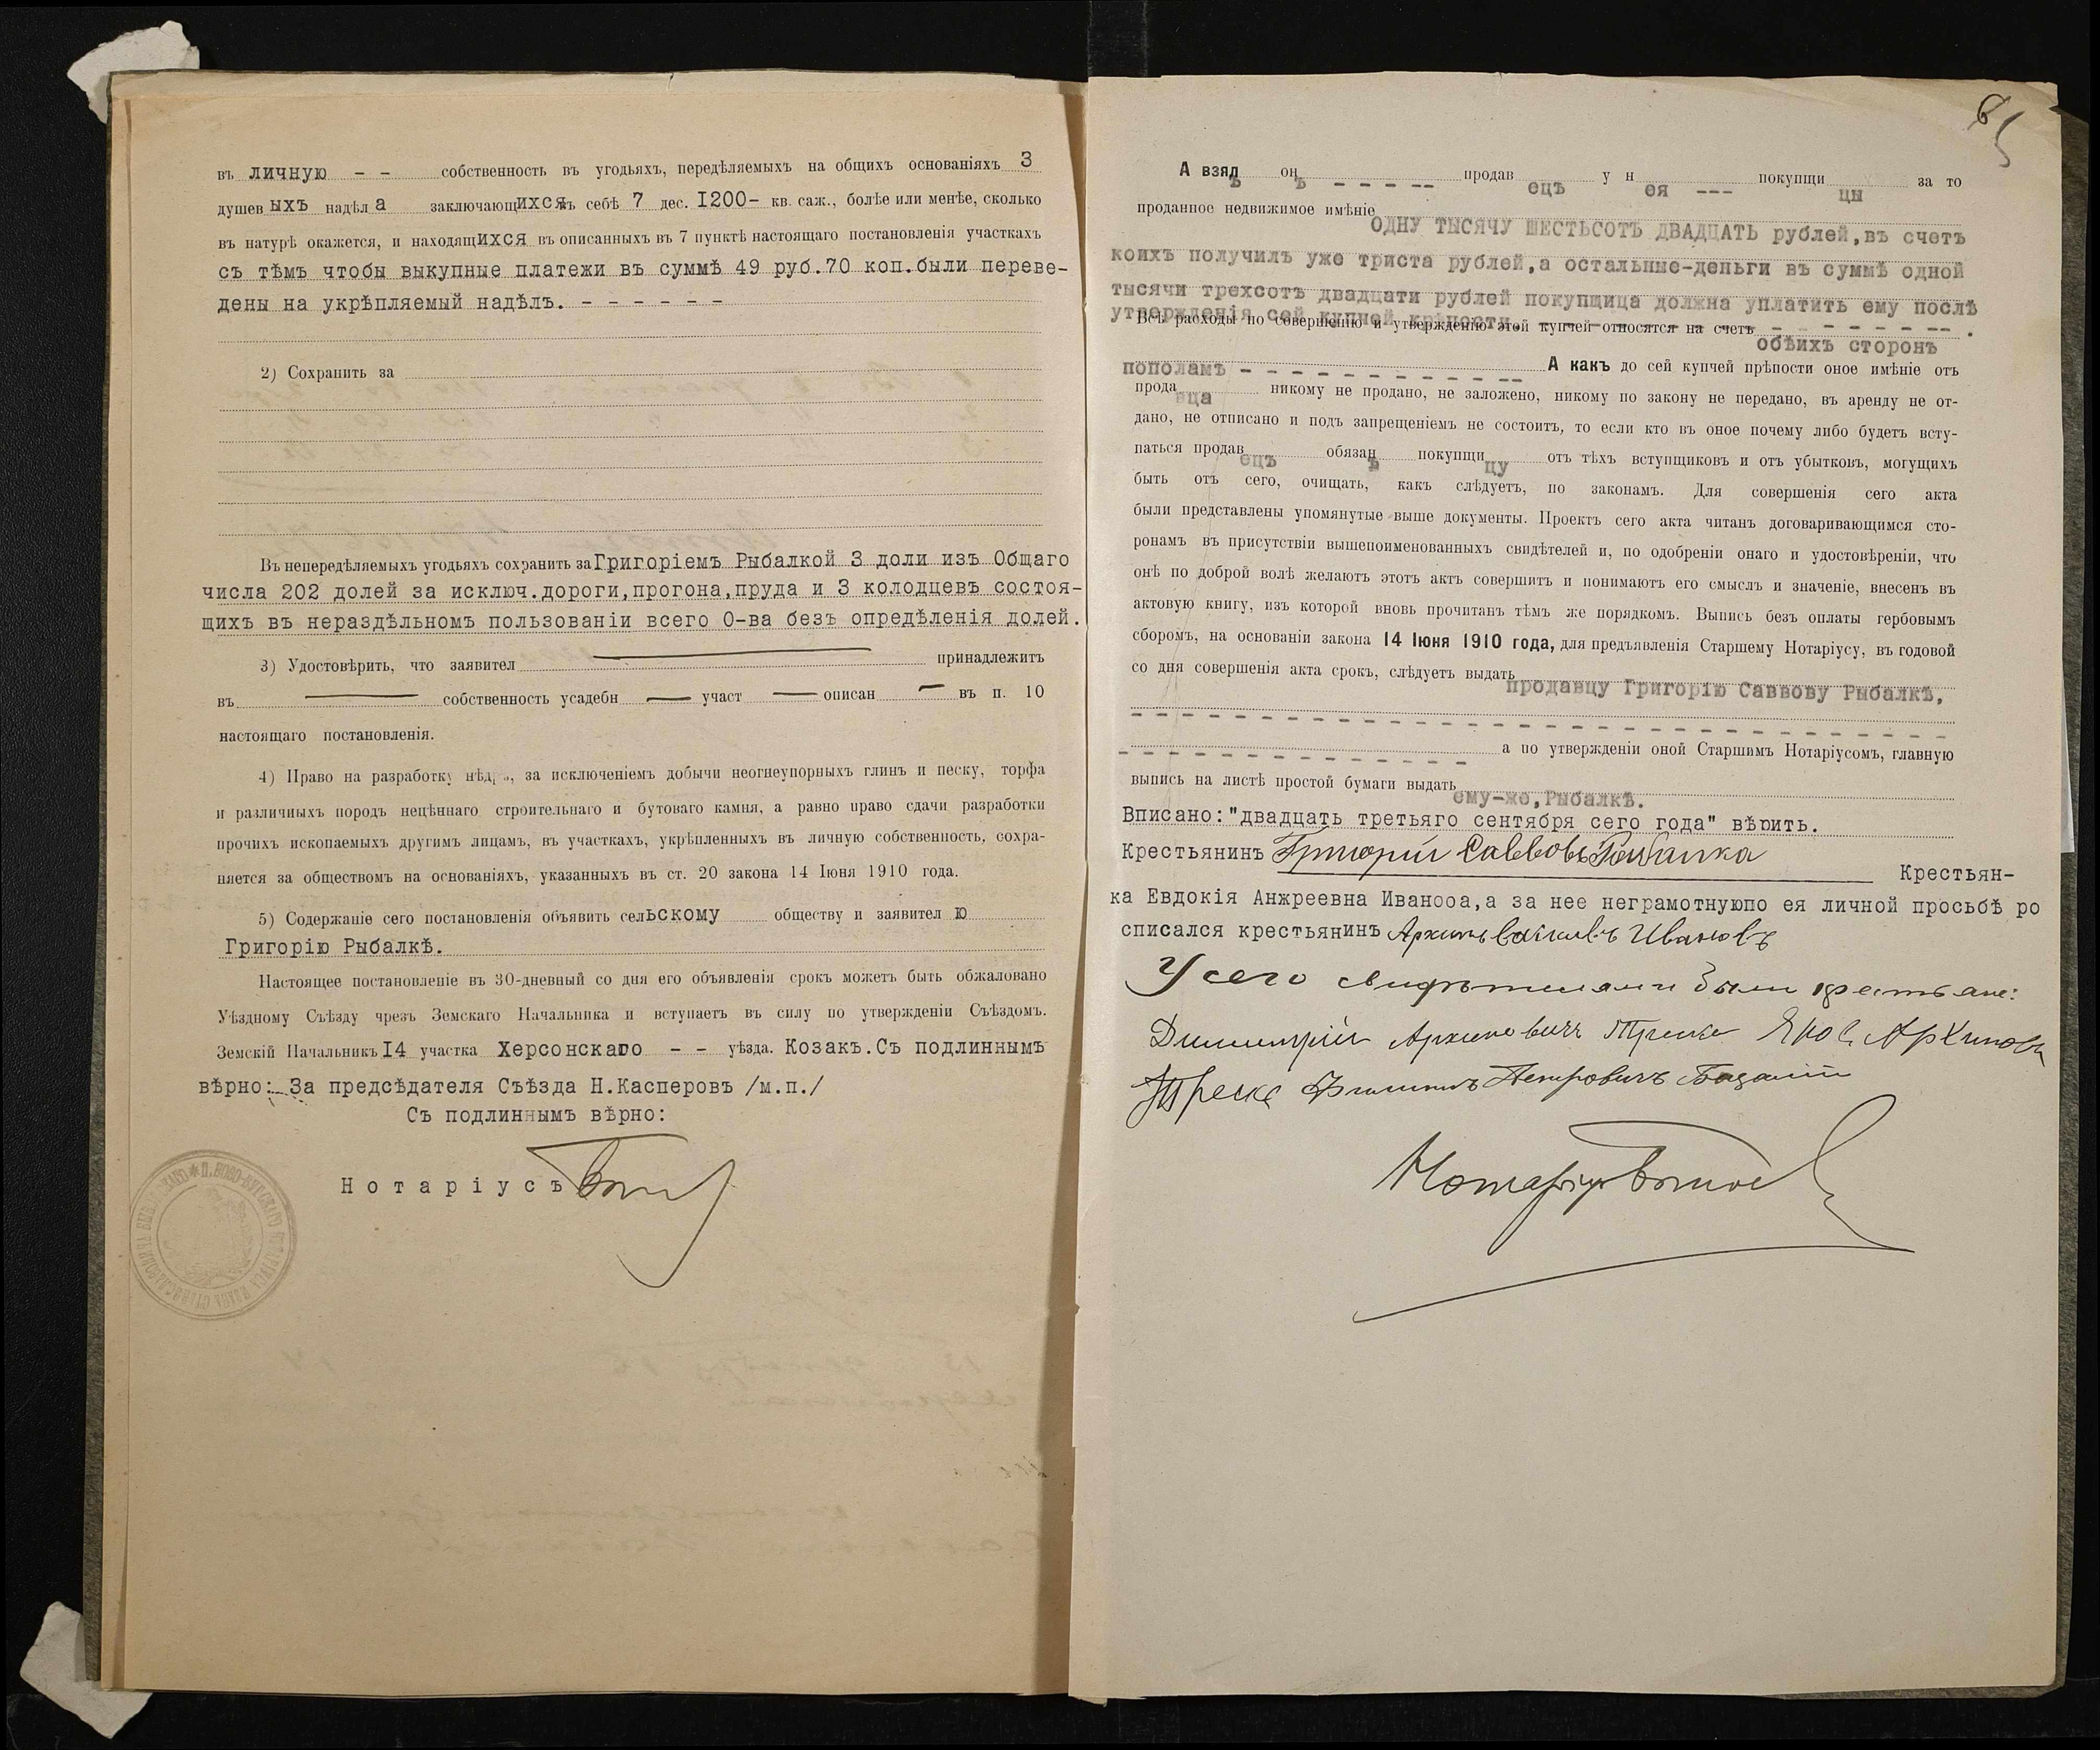 въ личную - - собственность въ угодьяхъ, передѣляемыхъ на общихъ основаніяхъ 3
душевыхъ надѣла заключающихся въ себѣ 7 дес. 1200- кв. саж., болѣе или менѣе, сколько
въ натурѣ окажется, и находящихся въ описанныхъ въ 7 пунктѣ настоящаго постановленія участкахъ
съ тѣмъ чтобы выкупные платежи въ суммѣ 49 руб.70 коп.были переве-
дены на укрѣпляемый надѣлъ. - - - - - -
2) Сохранить за
Въ непередѣляемыхъ угодьяхъ сохранить за Григоріемъ Рыбалкой 3 доли изъ Общаго
числа 202 долей за исключ.дороги,прогона,пруда и 3 колодцевъ состоя-
щихъ въ нераздѣльномъ пользованіи всего О-ва безъ опредѣленія долей.
3) Удостовѣрить, что заявител принадлежитъ
въ собственность усадебн участ описан въ п. 10
настоящаго постановленія.
4) Право на разработку нѣдръ, за исключеніемъ добычи неогнеупорныхъ глинъ и песку, торфа
и различныхъ породъ нецѣннаго строительнаго и бутоваго камня, а равно право сдачи разработки
прочихъ ископаемыхъ другимъ лицамъ, въ участкахъ, укрѣпленныхъ въ личную собственность, сохра-
няется за обществомъ на основаніяхъ, указанныхъ въ ст. 20 закона 14 Іюня 1910 года.
5) Содержаніе сего постановленія объявить сельскому обществу и заявителю
Григорію Рыбалкѣ.
Настоящее постановленіе въ 30-дневный со дня его объявленія срокъ можетъ быть обжаловано
Уѣздному Съѣзду чрезъ Земскаго Начальника и вступаетъ въ силу по утвержденіи Съѣздомъ.
Земскій Начальникъ 14 участка Херсонскаго - - уѣзда. Козакъ.Съ подлиннымъ
вѣрно: За предсѣдателя Съѣзда Н.Касперовъ /м.п./
Съ подлиннымъ вѣрно:
Нотаріусъ
А взялъ онъ - - - - -- продавецъ у нея --- покупщицы за то
проданное недвижимое имѣніе ОДНУ ТЫСЯЧУ ШЕСТЬСОТЪ ДВАДЦАТЬ рублей,въ счетъ
коихъ получилъ уже триста рублей,а остальные-деньги въ суммѣ одной
тысячи трехсотъ двадцати рублей покупщица должна уплатить ему послѣ
утвержденія сей купчей крѣпости.
Всѣ расходы по совершенію и утвержденію этой купчей относятся на счетъ обѣихъ сторонъ
пополамъ - - - - - - - - - - - -- А какъ до сей купчей прѣпости оное имѣніе отъ
продавца никому не продано, не заложено, никому по закону не передано, въ аренду не от-
дано, не отписано и подъ запрещеніемъ не состоитъ, то если кто въ оное почему либо будетъ всту-
паться продавецъ обязанъ покупщицу отъ тѣхъ вступщиковъ и отъ убытковъ, могущихъ
быть отъ сего, очищать, какъ слѣдуетъ, по законамъ. Для совершенія сего акта
были представлены упомянутые выше документы. Проектъ сего акта читанъ договаривающимся сто-
ронамъ въ присутствіи вышепоименованныхъ свидѣтелей и, по одобреніи онаго и удостовѣреніи, что
онѣ по доброй волѣ желаютъ этотъ актъ совершить и понимаютъ его смыслъ и значеніе, внесенъ въ
актовую книгу, изъ которой вновь прочитанъ тѣмъ же порядкомъ. Выпись безъ оплаты гербовымъ
сборомъ, на основаніи закона 14 Іюня 1910 года, для предъявленія Старшему Нотаріусу, въ годовой
со дня совершенія акта срокъ, слѣдуетъ выдать продавцу Григорію Саввову Рыбалкѣ,
а по утвержденіи оной Старшимъ Нотаріусомъ, главную
выпись на листѣ простой бумаги выдать ему-же,Рыбалкѣ.
Вписано:"двадцать третьяго сентября сего года" вѣрить.
Крестьянинъ Григорій Саввовъ Рыбалка Крестьян-
ка Евдокія Анжреевна Иваноoа,а за нее неграмотнуюпо ея личной просьбѣ ро
списался крестьянинъ Архипъ Ивановъ
У сего свидѣтелями были крестьяне:
Димитрій Архиповичъ Треске Яков Архиповъ
Треске Филиппъ Петровичъ
Нотаріусъ